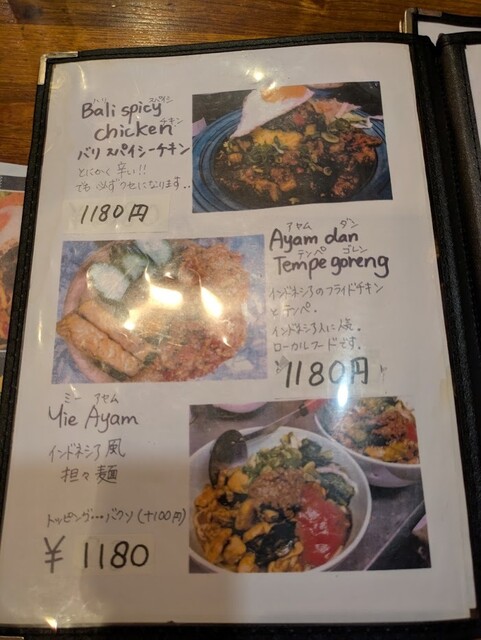 バリ スパイシー
Bali spicy
チキン
chicken
バリ スパイシーチキン
とにかく辛い!!
でも必ずクセになります..
1180円
アヤム ダン
Ayam dan
テンペ ゴレン
Tempe goreng
インドネシアのフライドチキン
とテンペ.
インドネシア人に
ローカルフードです.
1180円
ミー アヤム
Mie Ayam
インドネシア風
担々麺
トッピング…バクソ(+100円)
¥ 1180